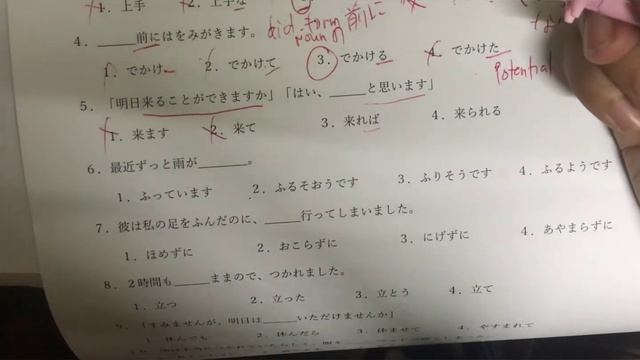 1. 上手 2. 上手な
4. ______前にはをみがきます。 dict form 前に
noun の
1. でかけ 2. でかけて 3. でかける 4. でかけた
potential
5. 「明日来ることができますか」「はい、______と思います」
1. 来ます 2. 来て 3. 来れば 4. 来られる
6. 最近ずっと雨が______。
1. ふっています 2. ふるそおうです 3. ふりそうです 4. ふるようです
7. 彼は私の足をふんだのに、______行ってしまいました。
1. ほめずに 2. おこらずに 3. にげずに 4. あやまらずに
8. 2時間も______ままので、つかれました。
1. 立つ 2. 立った 3. 立とう 4. 立て
9. 「すみませんが、明日は______いただけませんか」
1. 休んでも 2. 休んだら 3. 休ませて 4. やすまれて